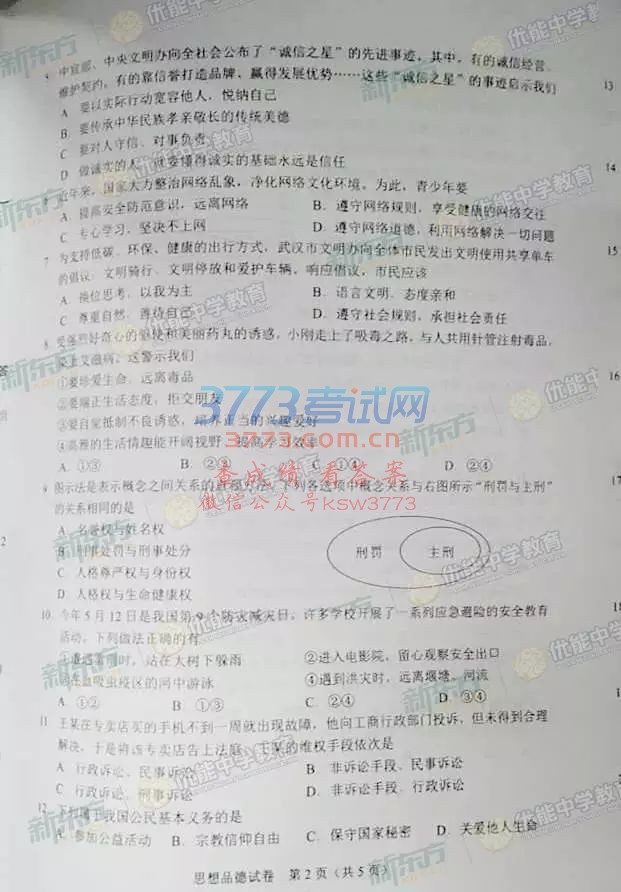 中宣部、中央文明办向全社会公布了“诚信之星”的先进事迹，其中，有的诚信经营、
维护契约，有的靠信誉打造品牌、赢得发展优势……这些“诚信之星”的事迹启示我们
A. 要以实际行动宽容他人，悦纳自己
B. 要传承中华民族孝亲敬长的传统美德
C. 要对人守信、对事负责
D. 做诚实的人，就要懂得诚实的基础永远是信任
近年来，国家大力整治网络乱象，净化网络文化环境。为此，青少年要
A. 提高安全防范意识，远离网络 B. 遵守网络规则，享受健康的网络交往
C. 专心学习，坚决不上网 D. 遵守网络道德，利用网络解决一切问题
7 为支持低碳、环保、健康的出行方式，武汉市文明办向全体市民发出文明使用共享单车
的倡议：文明骑行、文明停放和爱护车辆。响应倡议，市民应该
A. 换位思考，以我为主 B. 语言文明、态度亲和
C. 尊重自然，善待自己 D. 遵守社会规则，承担社会责任
8 受强烈好奇心的驱使和美丽药丸的诱惑，小刚走上了吸毒之路，与人共用针管注射毒品，
染上艾滋病。这警示我们
①要珍爱生命，远离毒品
②要端正生活态度，拒交朋友
③要自觉抵制不良诱惑，培养正当的兴趣爱好
④高雅的生活情趣能开阔视野，提高学习效率
A. ①③ B. ②③ C. ①④ D. ②④
9 图示法是表示概念之间关系的直观方法。下列各选项中概念关系与右图所示“刑罚与主刑”
的关系相同的是
A. 名誉权与姓名权
B. 刑事处罚与刑事处分
C. 人格尊严权与身份权
D. 人格权与生命健康权
刑罚 主刑
10. 今年5月12日是我国第9个防灾减灾日，许多学校开展了一系列应急避险的安全教育
活动。下列做法正确的有
①遭遇雷雨时，站在大树下躲雨 ②进入电影院，留心观察安全出口
③在血吸虫疫区的河中游泳 ④遇到洪灾时，远离堰塘、河流
A. ①② B. ①③ C. ②④ D. ③④
11 王某在专卖店买的手机不到一周就出现故障，他向工商行政部门投诉，但未得到合理
解决，于是将该专卖店告上法庭。王某的维权手段依次是
A. 行政诉讼、民事诉讼 B. 非诉讼手段、民事诉讼
C. 行政诉讼、刑事诉讼 D. 非诉讼手段、行政诉讼
12 下列属于我国公民基本义务的是
A. 参加公益活动 B. 宗教信仰自由 C. 保守国家秘密 D. 关爱他人生命
思想品德试卷 第2页（共5页）
13
14
15
16
17
3773考试网
3773.com.cn
查成绩看答案
微信公众号ksw3773
新东方
优能中学教育